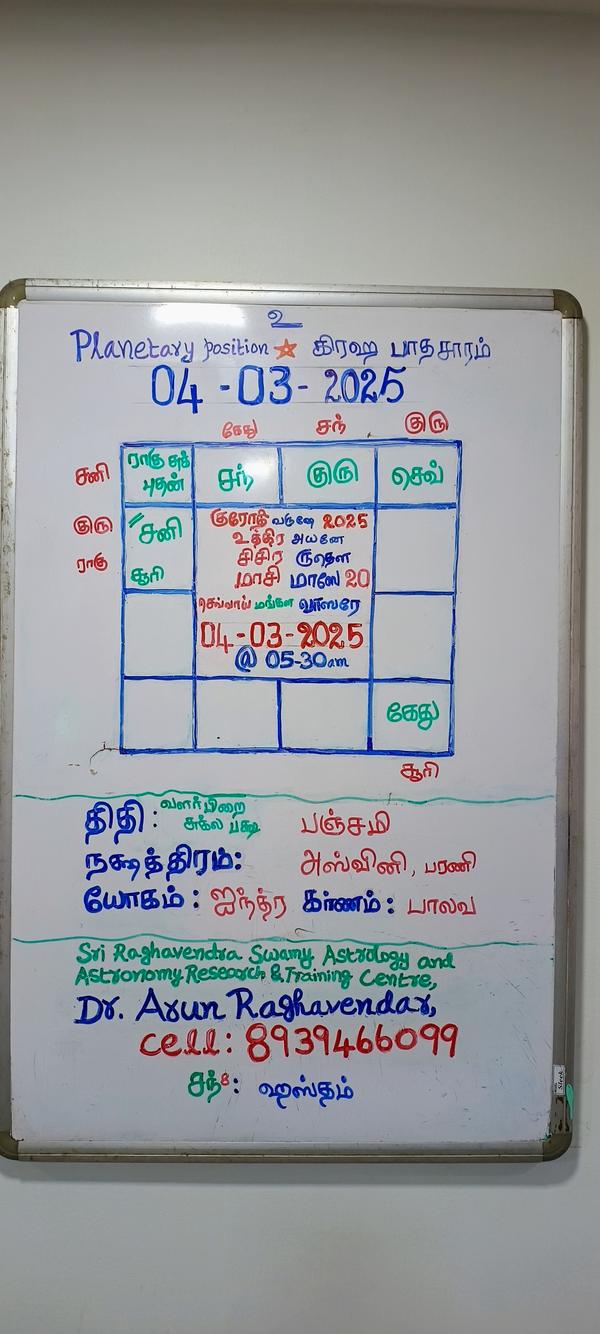 உ
Planetary position கிரஹ பாதசாரம்
04-03-2025
கேது சந் குரு
சனி
ராகு சுக் சந் குரு செவ்
புதன்
குரு சனி
ராகு சூரி
குரோதி வருஷே 2025
உத்திர அயனே
சிசிர ருதௌ
மாசி மாஸே 20
செவ்வாய் மங்கள வாஸரே
04-03-2025
@ 05-30am
கேது
சூரி
திதி: வளர்பிறை பஞ்சமி
சுக்ல பக்ஷ
நக்ஷத்திரம்: அஸ்வினி, பரணி
யோகம்: ஐந்த்ர கர்ணம்: பாலவ
Sri Raghavendra Swamy Astrology and
Astronomy Research & Training Centre,
Dr. Arun Raghavendar,
cell: 8939466099
சந்8: ஹஸ்தம்